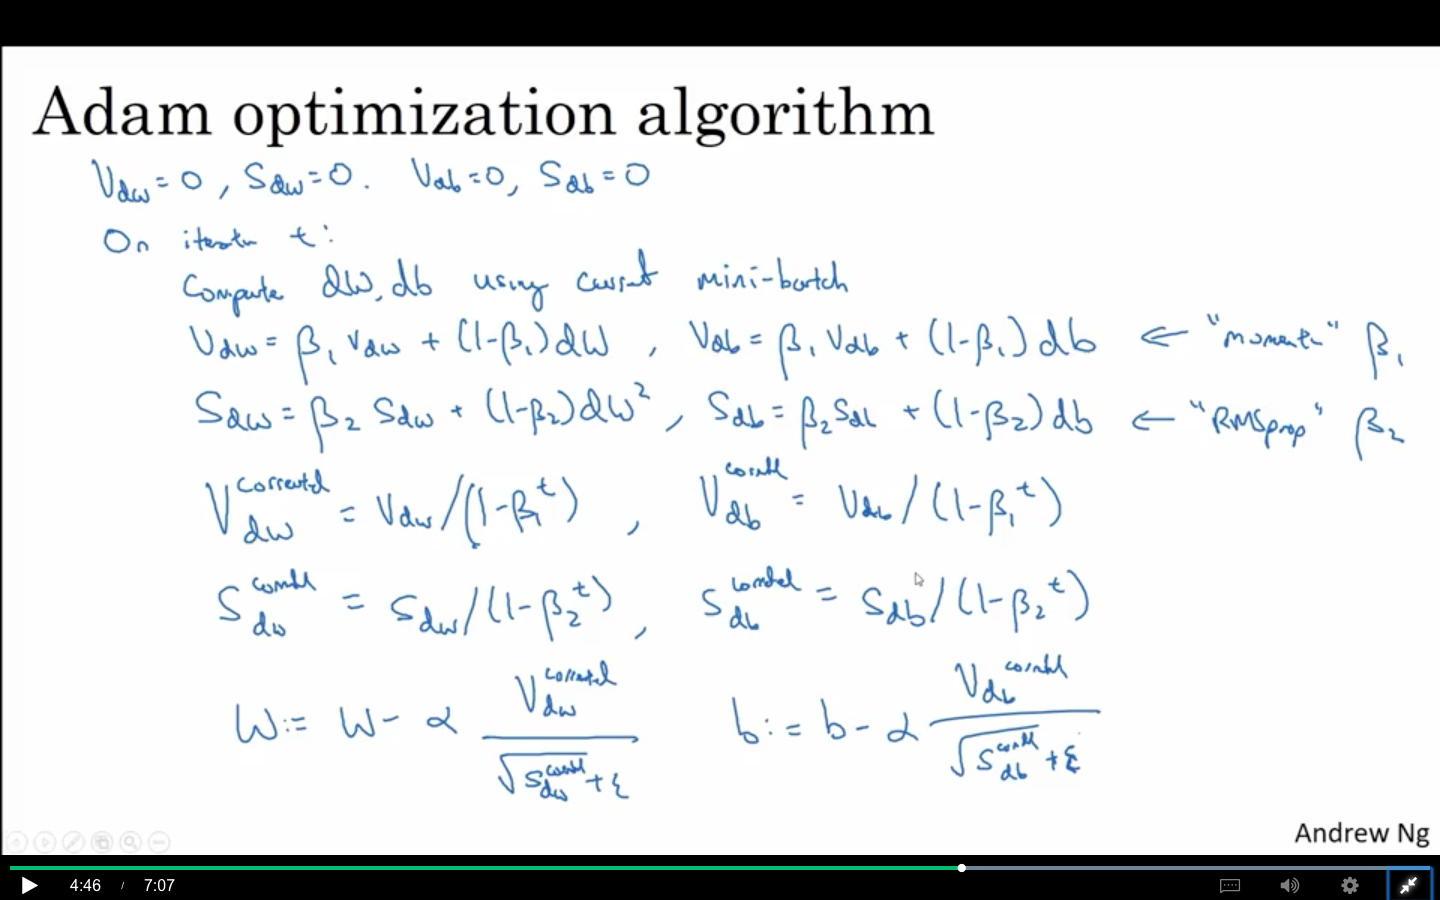 Adam optimization algorithm
V_dw = 0, S_dw = 0. V_db = 0, S_db = 0
On iteratn t:
Compute dW, db using current mini-batch
V_dw = β₁ V_dw + (1-β₁) dW, V_db = β₁ V_db + (1-β₁) db ← "moment" β₁
S_dw = β₂ S_dw + (1-β₂) dW², S_db = β₂ S_db + (1-β₂) db ← "RMSprop" β₂
V_dw^corrected = V_dw/(1-β₁^t), V_db^corrected = V_db/(1-β₁^t)
S_dw^corrected = S_dw/(1-β₂^t), S_db^corrected = S_db/(1-β₂^t)
W := W - α V_dw^corrected / (√S_dw^corrected + ε) b := b - α V_db^corrected / (√S_db^corrected + ε)
Andrew Ng
4:46 / 7:07